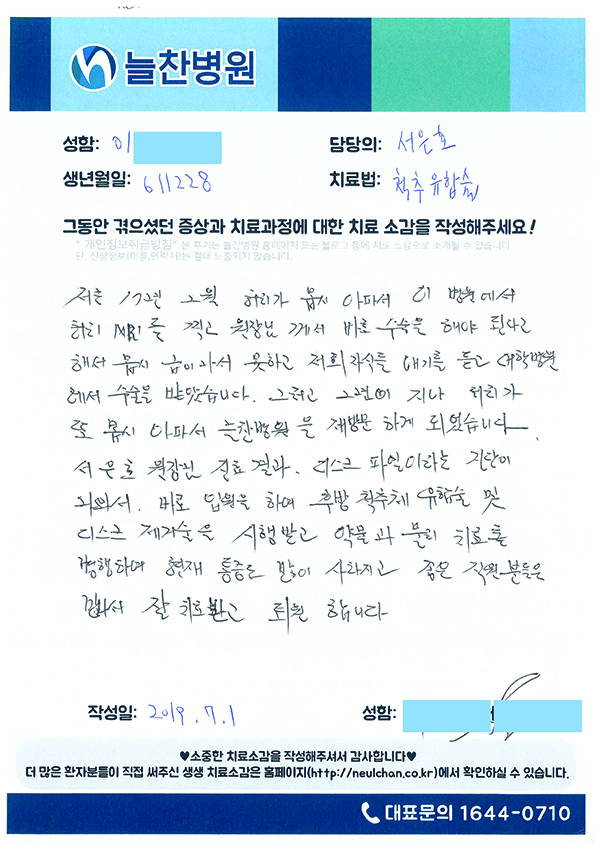 늘찬병원
성함: 이 담당의: 서은호
생년월일: 611228 치료법: 척추유합술
그동안 겪으셨던 증상과 치료과정에 대한 치료 소감을 작성해주세요!
* 개인정보취급방침* 본 후기는 늘찬병원 홈페이지 또는 블로그 등에 치료 소감으로 소개될 수 있습니다.
단, 신상정보(이름,연락처)는 절대 노출되지 않습니다.
저는 17년 2월 허리가 몹시 아파서 이 병원에서
허리 MRI를 찍고 원장님께서 바로 수술을 해야 된다고
해서 몹시 겁이나서 못하고 저희 자식들 얘기를 듣고 대학병원
에서 수술을 받았습니다. 그리고 2년이 지나 허리가
또 몹시 아파서 늘찬병원을 재방문 하게 되었습니다
서은호 원장님 진료 결과. 디스크 파열이라는 진단이
나와서. 바로 입원을 하여 후방 척추체 유합술 및
디스크 제거술을 시행받고 약물과 물리 치료를
병행하며 현재 통증도 많이 사라지고 좋은 직원분들을
만나서 잘 치료받고 퇴원 합니다
작성일: 2019. 7. 1 성함:
♥소중한 치료소감을 작성해주셔서 감사합니다♥
더 많은 환자분들이 직접 써주신 생생 치료소감은 홈페이지(http://neulchan.co.kr)에서 확인하실 수 있습니다.
대표문의 1644-0710